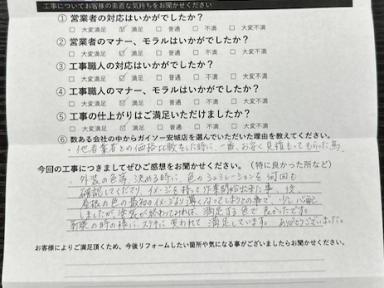 工事についてお客様の素直な気持ちをお聞かせください
① 営業者の対応はいかがでしたか？
□ 大変満足 ☑ 満足 □ 普通 □ 不満 □ 大変不満
② 営業者のマナー、モラルはいかがでしたか？
□ 大変満足 ☑ 満足 □ 普通 □ 不満 □ 大変不満
③ 工事職人の対応はいかがでしたか？
□ 大変満足 ☑ 満足 □ 普通 □ 不満 □ 大変不満
④ 工事職人のマナー、モラルはいかがでしたか？
□ 大変満足 ☑ 満足 □ 普通 □ 不満 □ 大変不満
⑤ 工事の仕上がりはご満足いただけましたか？
□ 大変満足 ☑ 満足 □ 普通 □ 不満 □ 大変不満
⑥ 数ある会社の中からガイソー安城店を選んでいただいた理由を教えてください。
・他者業者との価格比較をした時に、一番、お安く見積もってもらった為
今回の工事につきましてぜひご感想をお聞かせください。（特に良かった所など）
・外装の色等、決める時に色のシュミレーションを何回も
確認してくださり、イメージを持って作業開始出来た事
屋根の色の最初のイメージより薄くなってしまうとの事で、少し心配
しましたが、塗装が終わってみれば、満足する色で良かったです。
新築の時の様に、ステキに変われて満足しています。ありがとうございました。
お客様によりご満足頂くため、今後リフォームしたい箇所や気になる事がございましたらお聞かせください。